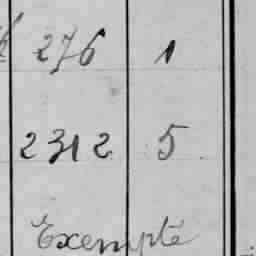 276 1
2312 5
Exempté